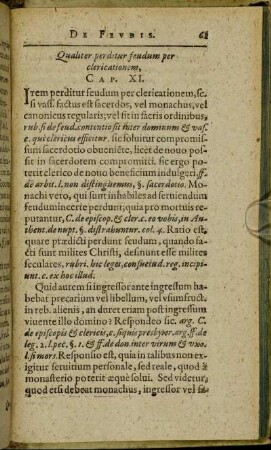 DE FEVDIS. 61
Qualiter perditur feudum per
clericationem,
CAP. XI.
ITem perditur feudum per clericationem, sc.
si vass. factus est sacerdos, vel monachus, vel
canonicus regularis; vel fit in sacris ordinibus,
rub. si de feud. contentio sit inter dominum & vas.
c. qui clericus efficitur. sic soluitur compromis-
sum sacerdotio obueniēte, licet de nouo pos-
sit in sacerdotem compromitti. sic ergo pote-
rit clerico de nouo beneficium indulgeri, ff.
de arbit. l. non distinguemus, §. sacerdotio. Mo-
nachi vero, qui sunt inhabiles ad seruiendum
feudum incerte perdunt; quia pro mortuis re-
putantur, C. de episcop. & cler. c. eo vobis, in Au-
thent. de nupt. §. distrahuntur. col. 4. Ratio est,
quare prædicti perdunt feudum, quando fa-
cti sunt milites Christi, desinunt esse milites
seculares, rubri. hic leges, consuetud. reg. incipi-
unt. c. ex hoc illud.
Quid autem si ingressor ante ingressum ha-
bebat precarium vel libellum, vel vsumfruct.
in reb. alienis, an duret etiam post ingressum
viuente illo domino? Respondeo sic. arg. C.
de episcopis & clericis, c. si quis presbyter, arg. ff. de
leg. 2. l. pec. §. 1. & ff. de don. inter virum & vxo.
l. si mors. Responsio est, quia in talibus non ex-
igitur seruitium personale, sed reale, quod à
monasterio poterit æquè solui. Sed videtur,
quod etsi debeat monachus, ingressor vel